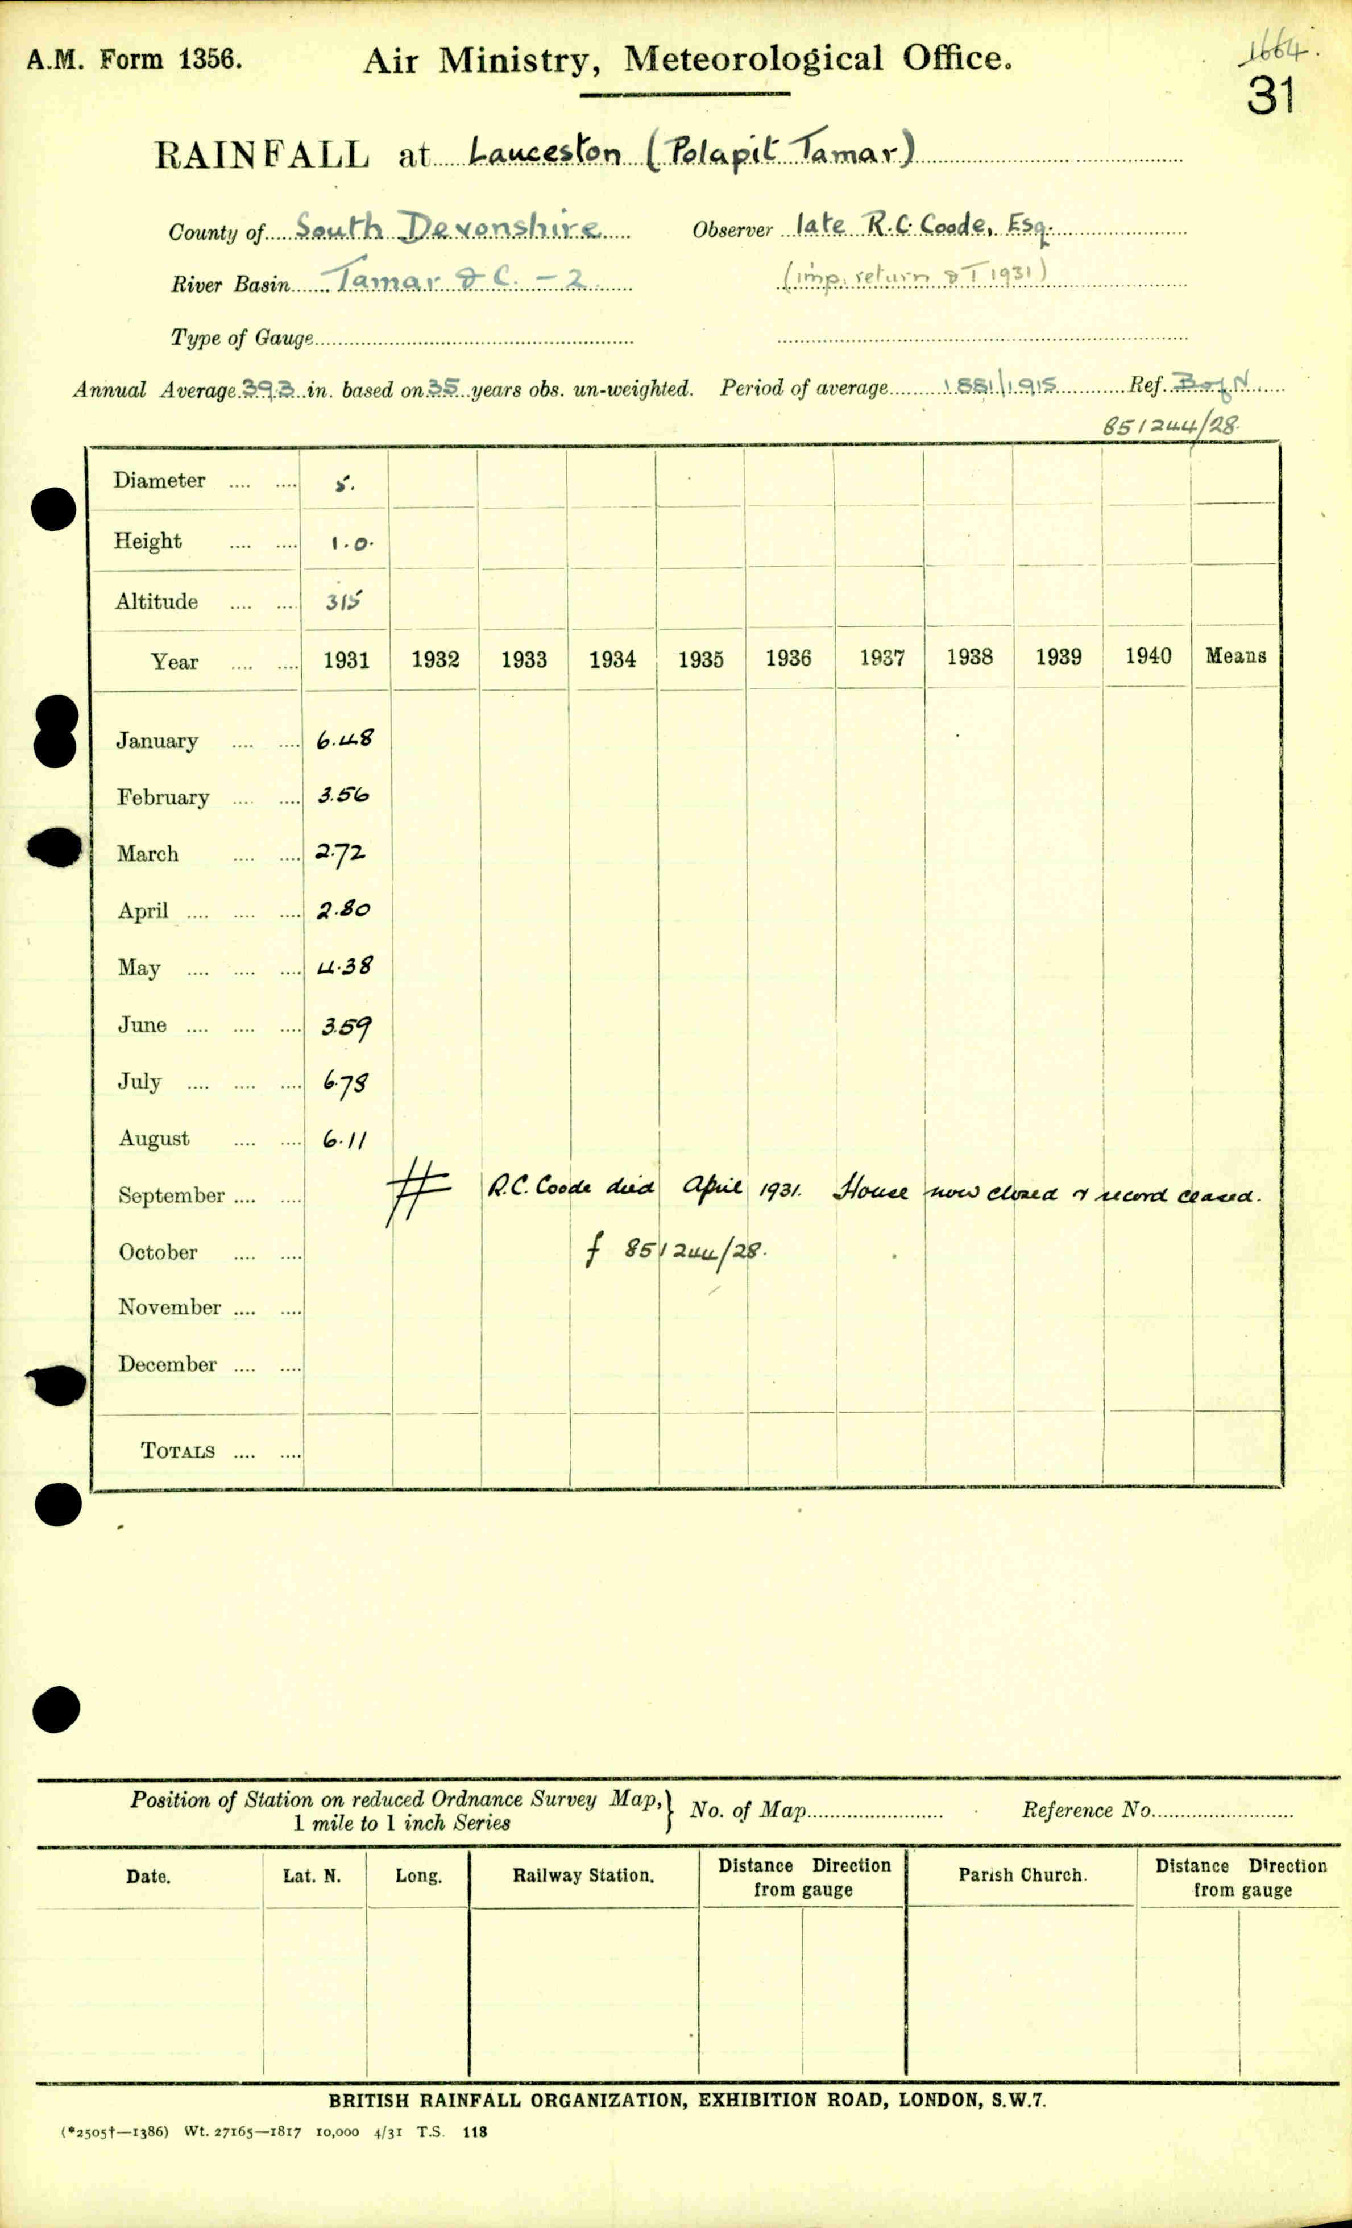 A.M. Form 1356.
Air Ministry, Meteorological Office.
1664.
31
RAINFALL at Lauceston (Polapit Tamar)
County of South Devonshire Observer late R.C. Coode, Esq.
River Basin Tamar & C. - 2. (imp. return & T 1931)
Type of Gauge
Annual Average 39.3 in. based on 35 years obs. un-weighted. Period of average 1881/1915 Ref. B of N.
851244/28.
Diameter .... .... 5.
Height .... .... 1.0.
Altitude .... .... 315
Year .... .... 1931 1932 1933 1934 1935 1936 1937 1938 1939 1940 Means
January .... .... 6.48
February .... .... 3.56
March .... .... 2.72
April .... .... .... 2.80
May .... .... .... 4.38
June .... .... .... 3.59
July .... .... .... 6.78
August .... .... 6.11
September .... .... # R.C. Coode died April 1931. House now closed & record ceased.
October .... .... f 851244/28.
November .... ....
December .... ....
TOTALS .... ....
Position of Station on reduced Ordnance Survey Map,} No. of Map Reference No.
1 mile to 1 inch Series
Date. Lat. N. Long. Railway Station. Distance Direction from gauge Parish Church. Distance Direction from gauge
BRITISH RAINFALL ORGANIZATION, EXHIBITION ROAD, LONDON, S.W.7.
(*2505†—1386) Wt. 27165—1817 10,000 4/31 T.S. 118